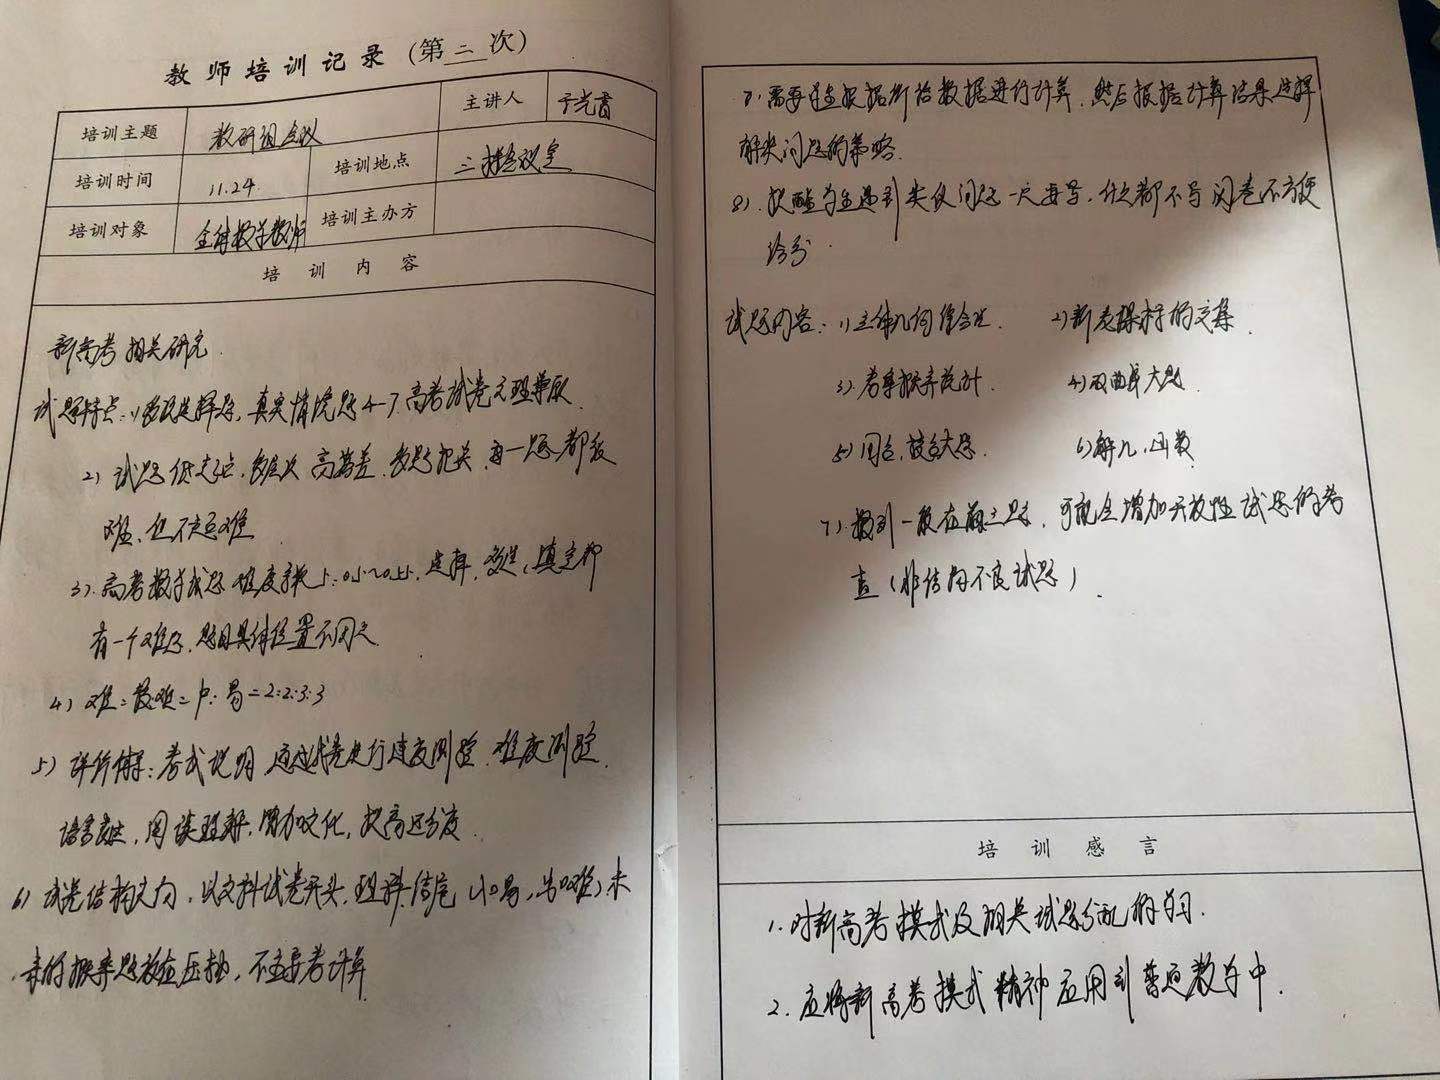 教师培训记录（第二次）
培训主题 教研组会议 主讲人 于光
培训时间 11.24 培训地点 三楼会议室
培训对象 全体数学教师 培训主办方
培训内容
新高考相关研究
试题特点：1)多选择题，真实情境题4-7 高考试卷文理兼顾
2) 试题低起点，多层次 高落差，多题把关，每一题都较
难，但不是难
3). 高考数学试题难度系数 0.5~0.55，选择，多选，填空都
有一个难题，题目具体位置不固定
4) 难：较难：中：易=2:2:3:3
5) 考试说明 通过试卷进行速度测验，难度测验
语言表述，阅读理解，增加文化，提高区分度
6) 试卷结构，以文科试卷开头，理科结尾 (小口易，难) 未
来的概率题放在压轴，不主要考计算
7. 需要考生根据所给数据进行计算，然后根据计算结果选择
解决问题的策略
8). 提醒学生遇到类似问题一定要写，什么都不写阅卷不方便
给分
试题内容：1) 立体几何 2) 新老课标的交集
3) 概率统计 4) 双曲线大题
5) 大题 6) 解几，函数
7). 数列一般在前三题，可能会增加开放性试题的考
查（非结构不良试题）
培训感言
1. 对新高考模式及相关试题分配的学习.
2. 应将新高考模式精神应用到普通教学中.